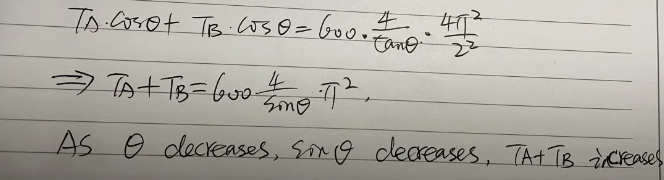 T_A·cosθ + T_B·cosθ = 600·4/tanθ·4π²/2²
⇒ T_A+T_B = 600 4/sinθ·π²,
As θ decreases, sinθ decreases, T_A+T_B increases